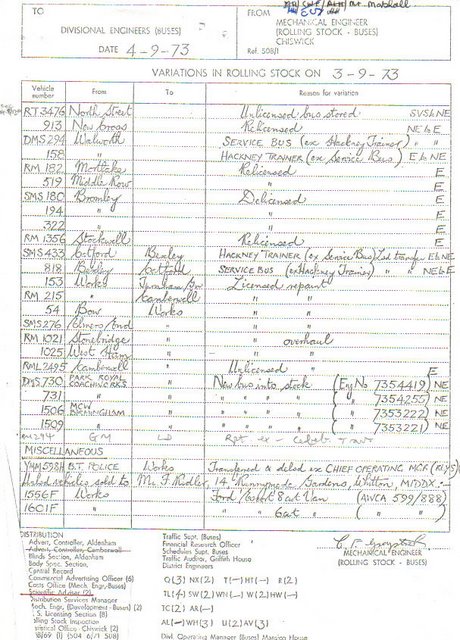 TO
DIVISIONAL ENGINEERS (BUSES)
DATE 4-9-73
FROM
MECHANICAL ENGINEER
(ROLLING STOCK - BUSES)
CHISWICK
Ref. 508/1
VARIATIONS IN ROLLING STOCK ON 3-9-73
Vehicle number From To Reason for variation
RT 3476 North Street Unlicensed bus stored SVS & NE
913 New Cross Relicensed NE & E
DMS 294 Walworth SERVICE BUS (ex Hackney Trainer) " "
158 " HACKNEY TRAINER (ex Service Bus) E & NE
RM 182 Mortlake Relicensed E
519 Middle Row " E
SMS 180 Bromley Delicensed E
194 " " E
322 " " E
RM 1356 Stockwell Relicensed E
SMS 433 Catford Bexley HACKNEY TRAINER (ex Service Bus) Lsd transfer E & NE
818 Bexley Catford SERVICE BUS (ex Hackney Trainer) " " NE & E
153 Works Turnham Grn Licensed repaint
RM 215 " Camberwell " "
54 Bow Works " "
SMS 276 Elmers End " " "
RM 1021 Stonebridge " " overhaul
1025 West Ham " " "
RML 2495 Camberwell " Unlicensed " E
DMS 730 PARK ROYAL COACHWORKS " New bus into stock (Eng No 7354419) NE
731 " " " " " " (" 7354255) NE
1506 MCW BIRMINGHAM " " " " " (" 7353222) NE
1509 " " " " " " (" 7353221) NE
RM 294 GM LD Rpt ex -
MISCELLANEOUS
YMM 598H B.T. POLICE Works Transferred & deled ex CHIEF OPERATING MGR (RLYS)
vehicles sold to Mr F. Ridler, 14 Runnymede Gardens, Whitton, MIDDX :-
1556F Works Ford Escort 8 cwt Van (AWCA 599/888)
1601F " " 6 cwt " ( " )
MECHANICAL ENGINEER
(ROLLING STOCK - BUSES)
DISTRIBUTION
Advert. Controller, Aldenham
Advert. Controller, Camberwell
Blinds Section, Aldenham
Body Spns. Section,
Central Record
Commercial Advertising Officer (6)
Costs Office (Mech. Engr-Buses)
Scientific Adviser (2)
Distribution Services Manager
Mech. Engr. (Development - Buses) (2)
I.S. Licensing Section (8)
Rolling Stock Inspection
Statistical Office, Chiswick (2)
Traffic Supt. (Buses)
Financial Research Officer
Schedules Supt. Buses
Traffic Auditor, Griffith House
District Engineers
Q(3) NX(2) T(-) HT(-) E(2)
TL(4) SW(2) WN(-) W(2) HW(-)
TC(2) AR(-)
AL(-) WH(3) U(2) AV(3)
Divl. Operating Manager (Buses) Mansion House